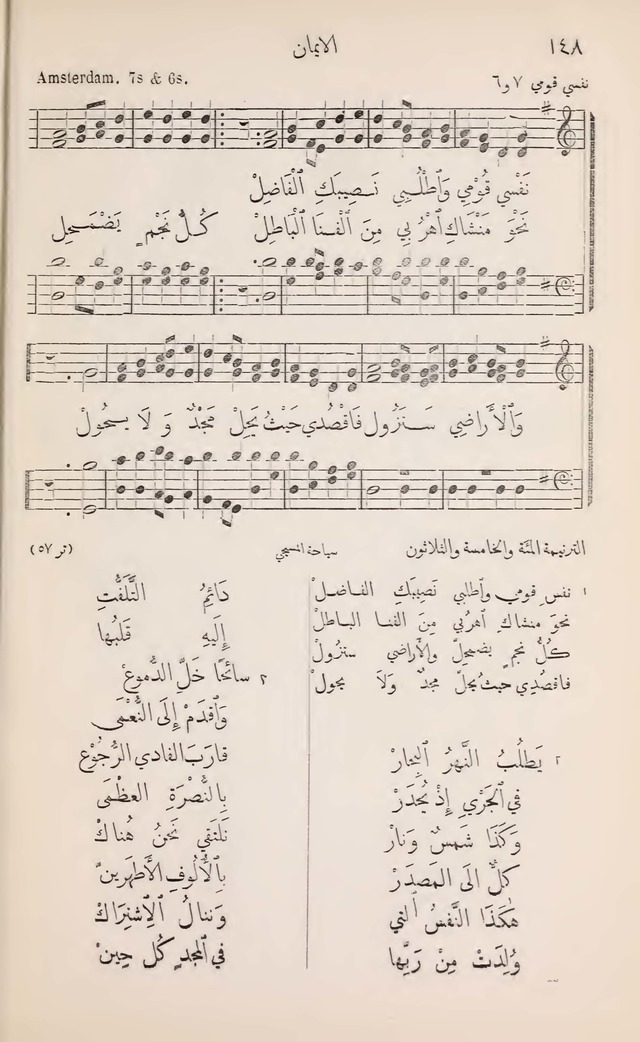 ١٤٨
الايمان
نفسي قومي ٧ و٦
Amsterdam. 7s & 6s.
نَفْسي قُومْي وَٱطْلُبِي نَصِيبَكِ ٱلْفَاضِلْ
نَحْوَ مَنْشَاكِ ٱهْرُبِي مِنَ ٱلْفَنَا ٱلْبَاطِلْ كُلُّ نَجْمٍ يَضْمَحِل
وَٱلْأَرَاضِي سَتَزُول فَاقْصُدِي حَيْثُ يَحِلْ مَجْدٌ وَ لَا يَحُولْ
الترنيمة المئة والخامسة والثلاثون سياحة المسيحي (تر ٥٧)
١ نفسِ قومي وٱطلبي نَصِيبَكِ الفاضلْ
نحوَ منشاكِ ٱهرُبي مِنَ الفنا الباطلْ
كلُّ نجمٍ يضمحلّ والأراضي ستزُولْ
فاقصُدِي حيثُ يحلّ مجدٌ وَلَا يحولْ
٢ يَطلُبُ النَّهرُ ٱلبِحَارْ
في ٱلجَرْيِ إِذْ يُحدَرْ
وَكَذَا شَمسٌ وَنَارْ
كلٌّ الَى المَصدَرْ
هٰكَذَا النَّفسُ ٱلتي
وُلِدَتْ مِنْ رَبِّها
دَائِمُ التَّلَفُّتِ
إِلَيهِ قَلبُها
٣ سائحًا خَلَّ الدُّموعْ
وَٱقدَمْ إِلَى النُّعْمَى
قارَبَ الفادي الرُّجُوعْ
بِالنُّصْرَةِ العظْمَى
نَلتَقي نَحنُ هُناكْ
بِٱلْأُلُوفِ ٱلأَطهَرِينْ
وَننالُ ٱلِٱشتِرَاكْ
في ٱلمجدِ كُلَّ حِينْ